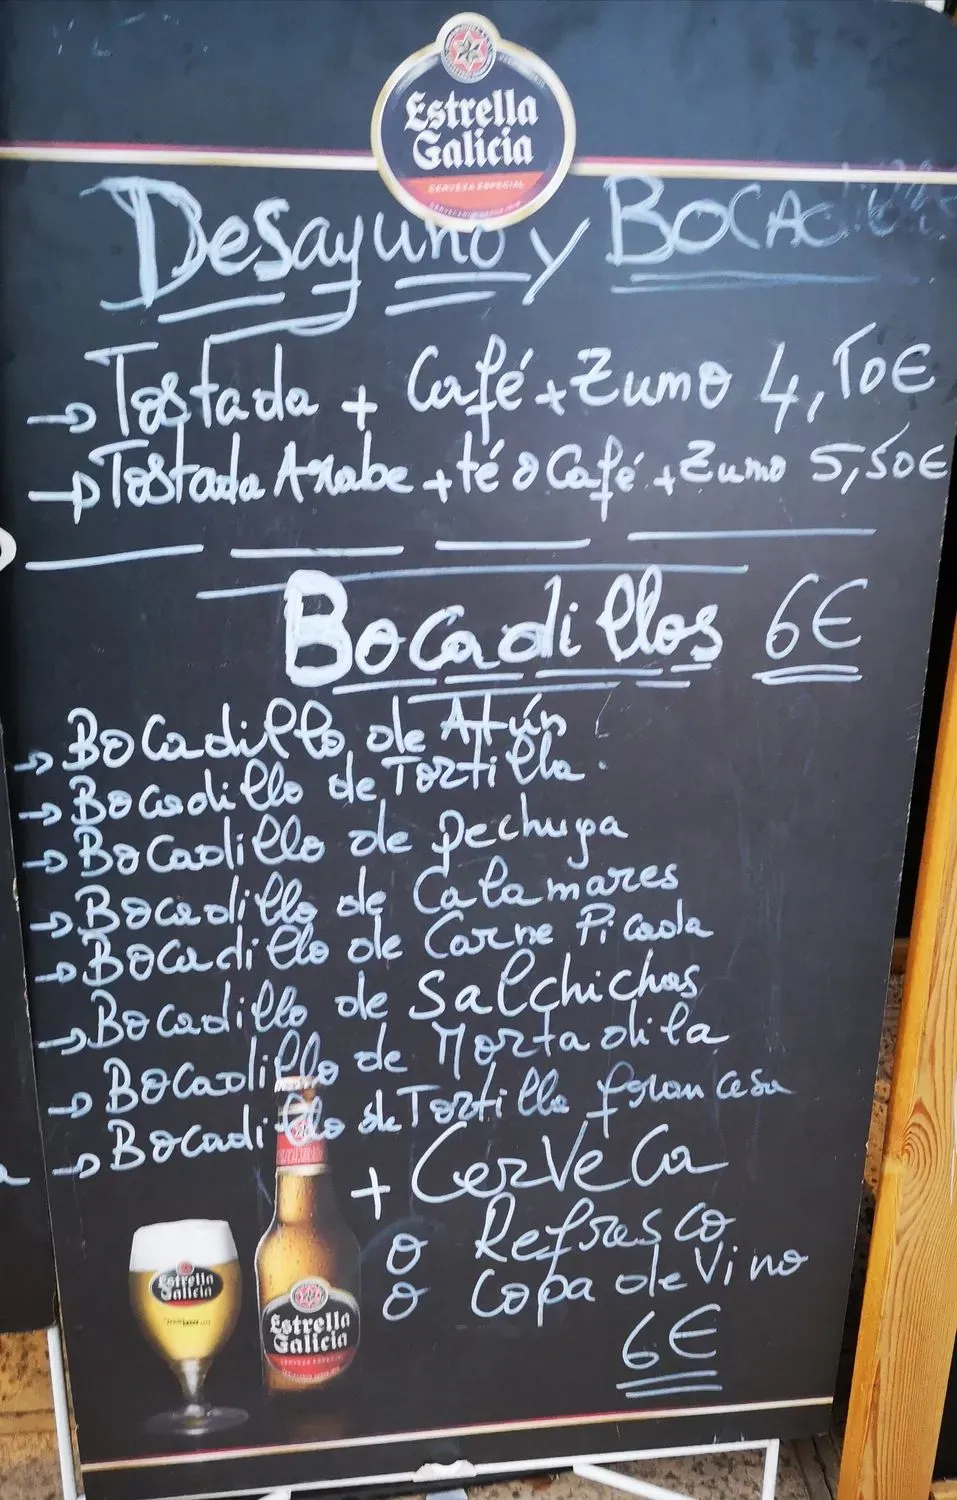 Estrella
Galicia
CERVEZA ESPECIAL
Desayuno y BOCAD
→ Tostada + Café + Zumo 4,50€
→ Tostada Arabe + té o Café + Zumo 5,50€
Bocadillos 6€
→ Bocadillo de Atún
→ Bocadillo de Tortilla.
→ Bocadillo de pechuga
→ Bocadillo de Calamares
→ Bocadillo de Carne Picada
→ Bocadillo de Salchichas
→ Bocadillo de Mortadila
→ Bocadillo de Tortilla francesa
+ CerVeCa
o Refresco
o Copa de Vino
6€
Estrella
Galicia
Estrella
Galicia
CERVEZA ESPECIAL